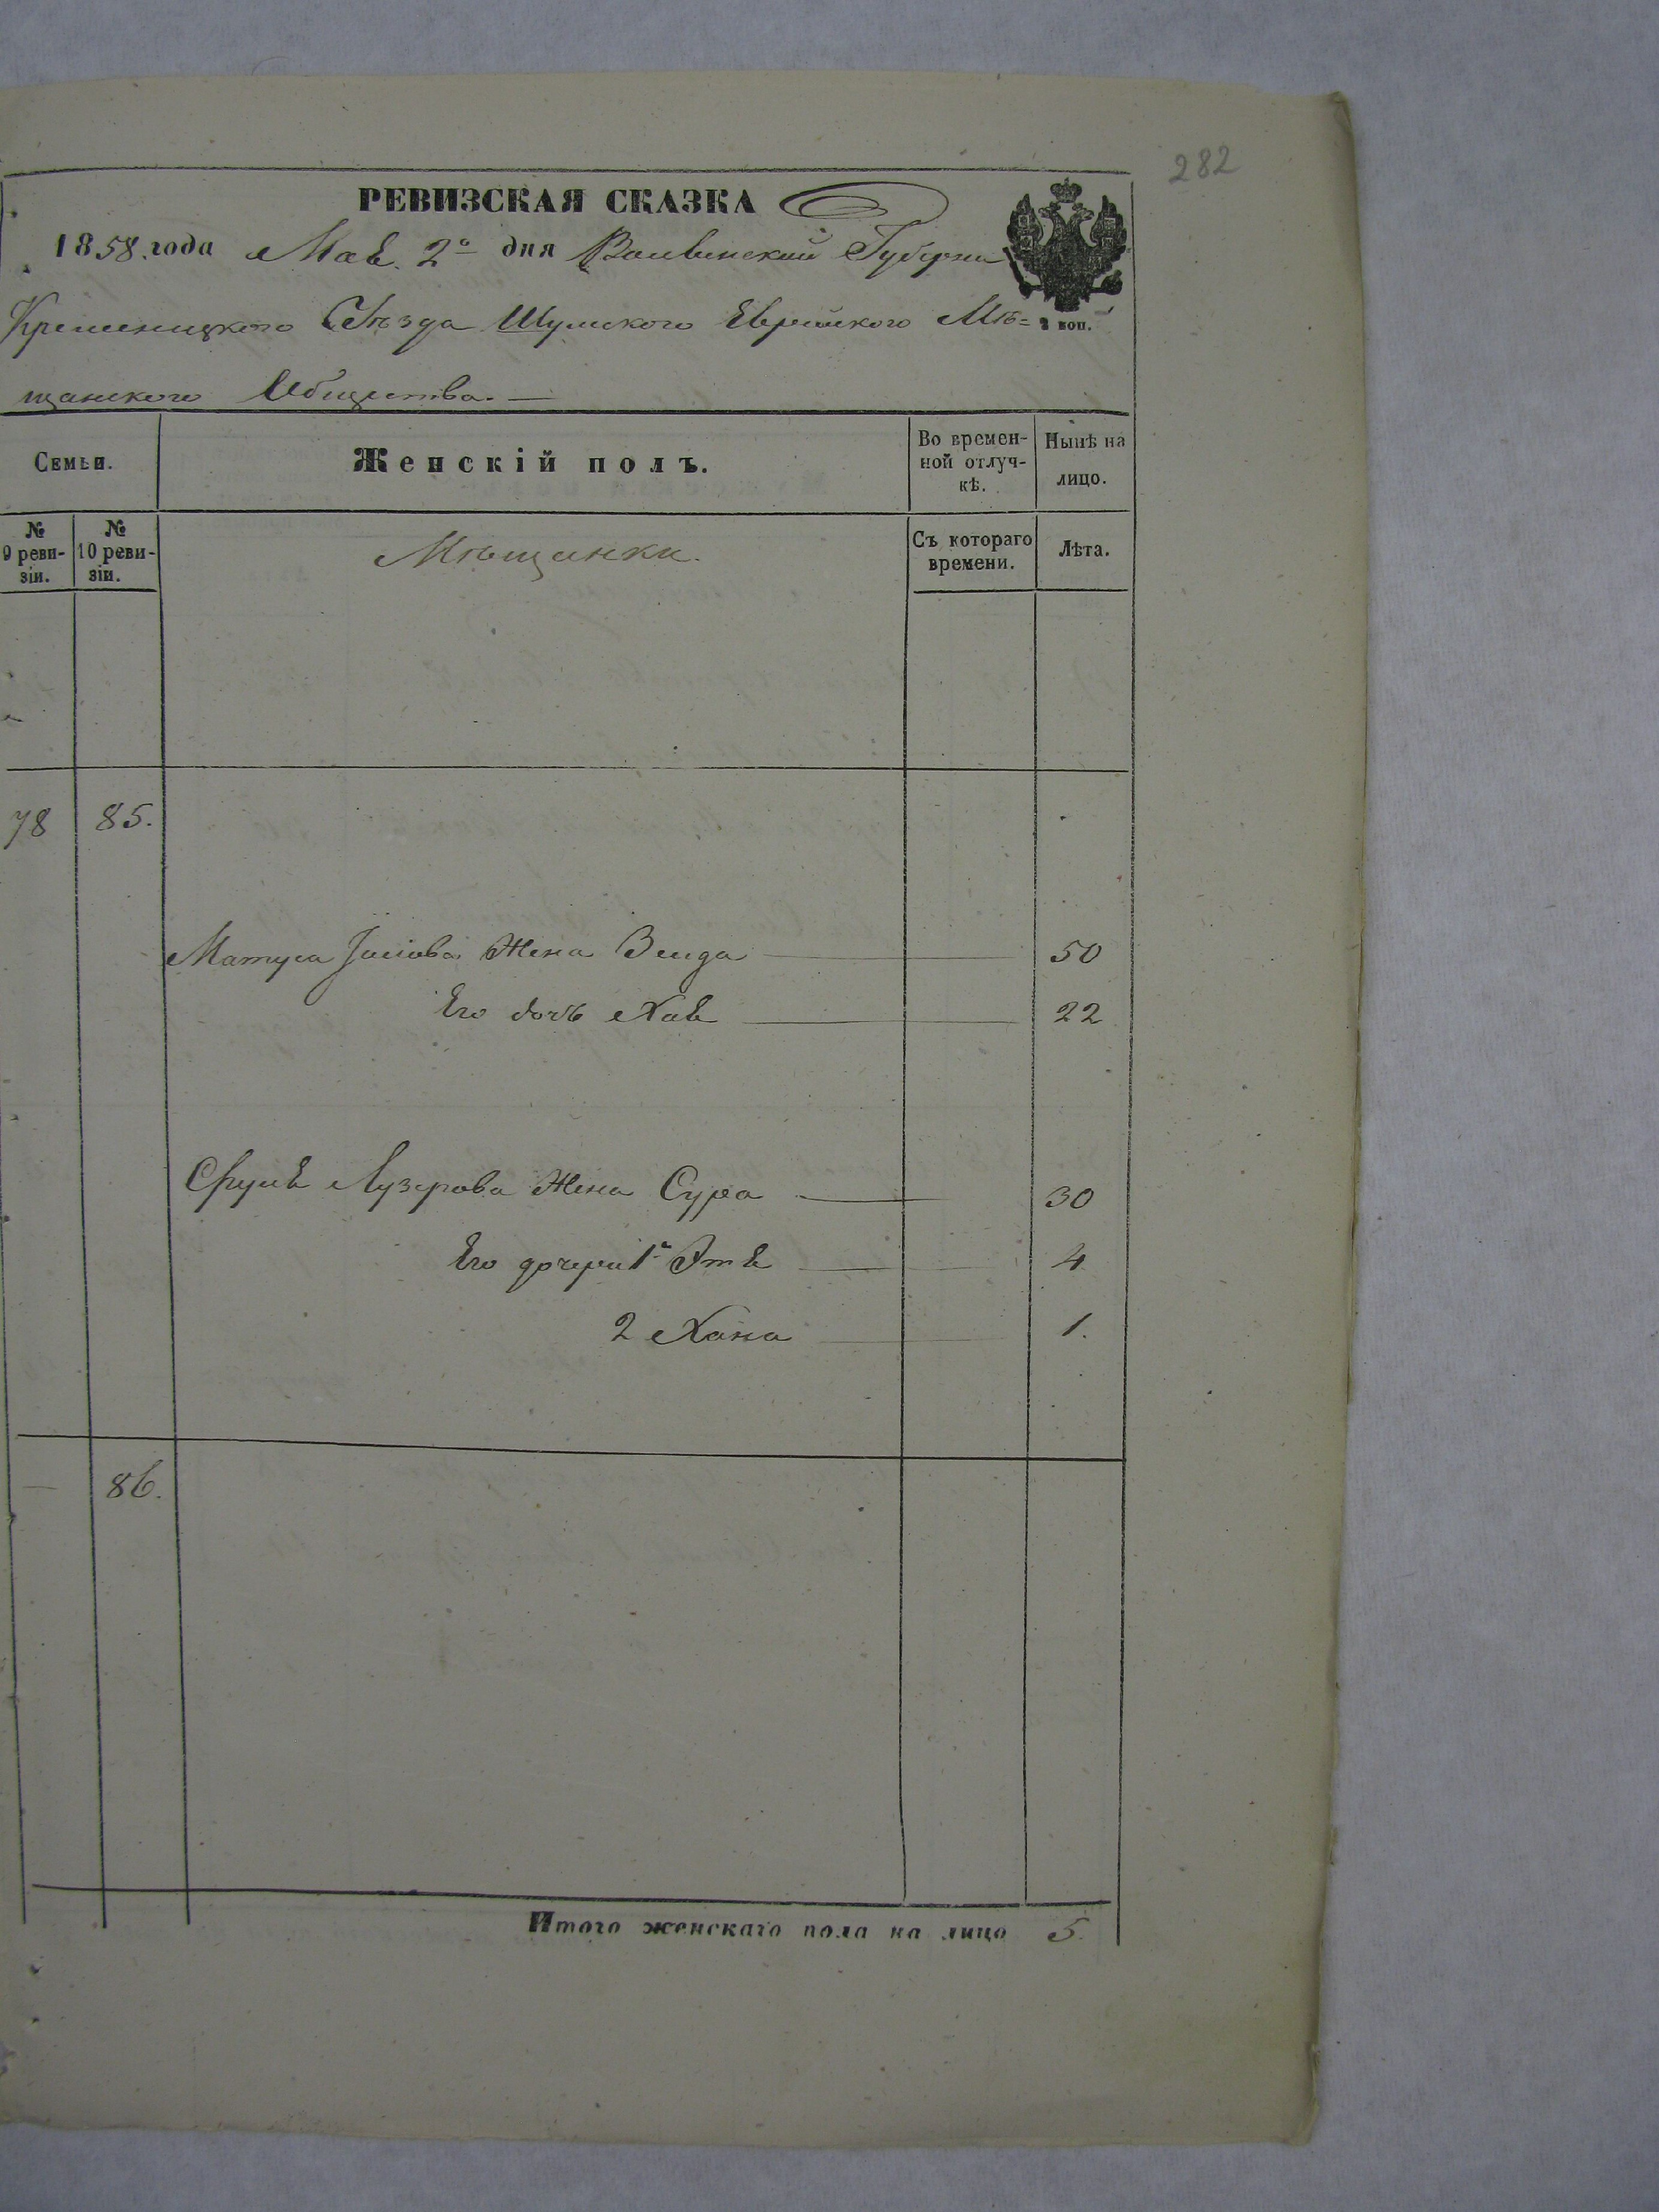 282
РЕВИЗСКАЯ СКАЗКА
1858. года Мая. 2го дня Волынской Губерніи
Кременецкого Уѣзда Шумского Еврейского Мѣ=
2 коп.
щанского Общества. —
Семьи.
Женскій полъ.
Во времен-
ной отлуч-
кѣ.
Нынѣ на
лицо.
№
9 реви-
зіи.
№
10 реви-
зіи.
Мѣщанки.
Съ котораго
времени.
Лѣта.
78 85.
Матуса Жена 50
Его дочь Хая 22
Лузерова Жена Сура 30
Его дочери 1я Этя 4
2 Хана 1.
— 86.
Итого женскаго пола на лицо 5.